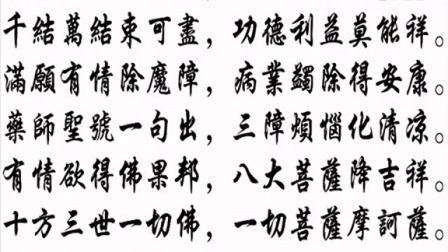 千結萬結束可盡，功德利益莫能祥。
滿願有情除魔障，病業蠲除得安康。
藥師聖號一句出，三障煩惱化清凉。
有情欲得佛果邦，八大菩薩降吉祥。
十方三世一切佛，一切菩薩摩訶薩。